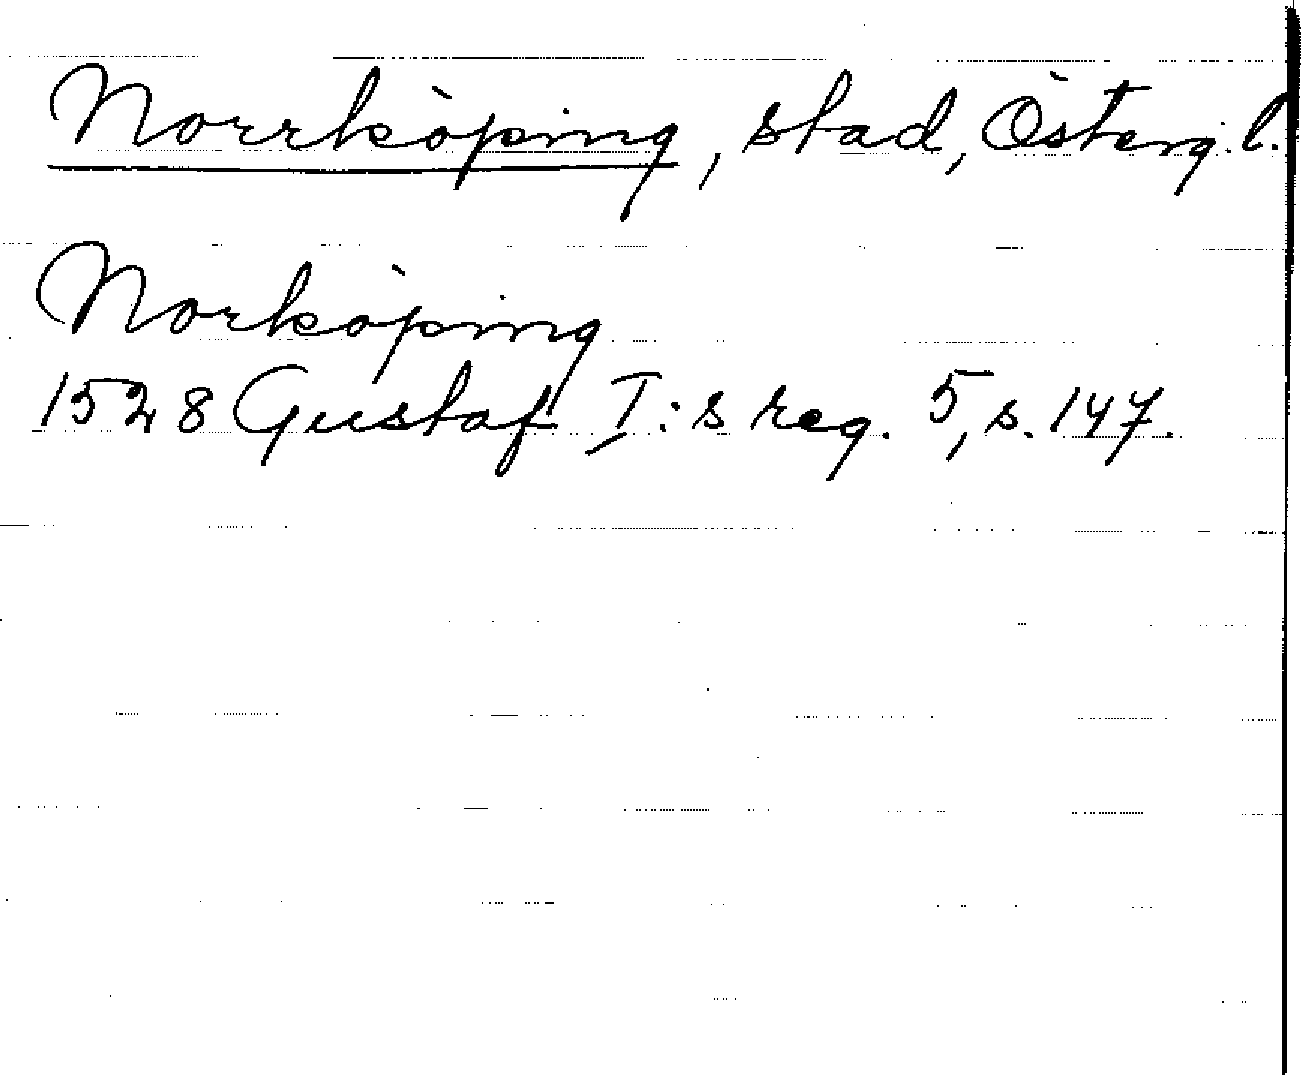 Norrköping, stad, Österg. l.
Norköping
1528 Gustaf I:s reg. 5, s. 147.